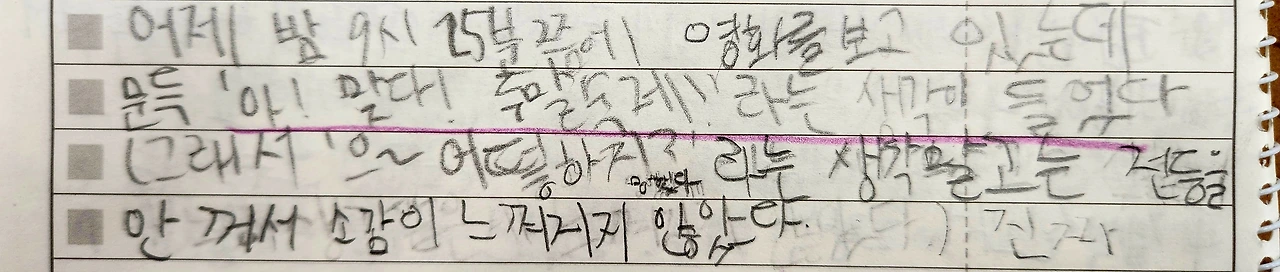 어제 밤 9시 25분쯤에 영화를 보고 있는데
문득 '아! 맞다! 주말숙제!' 라는 생각이 들었다
(그래서 '으~ 어떡하지?' 라는 생각말고는
안 꺼서 소감이 느껴지지 않았다.) 진짜